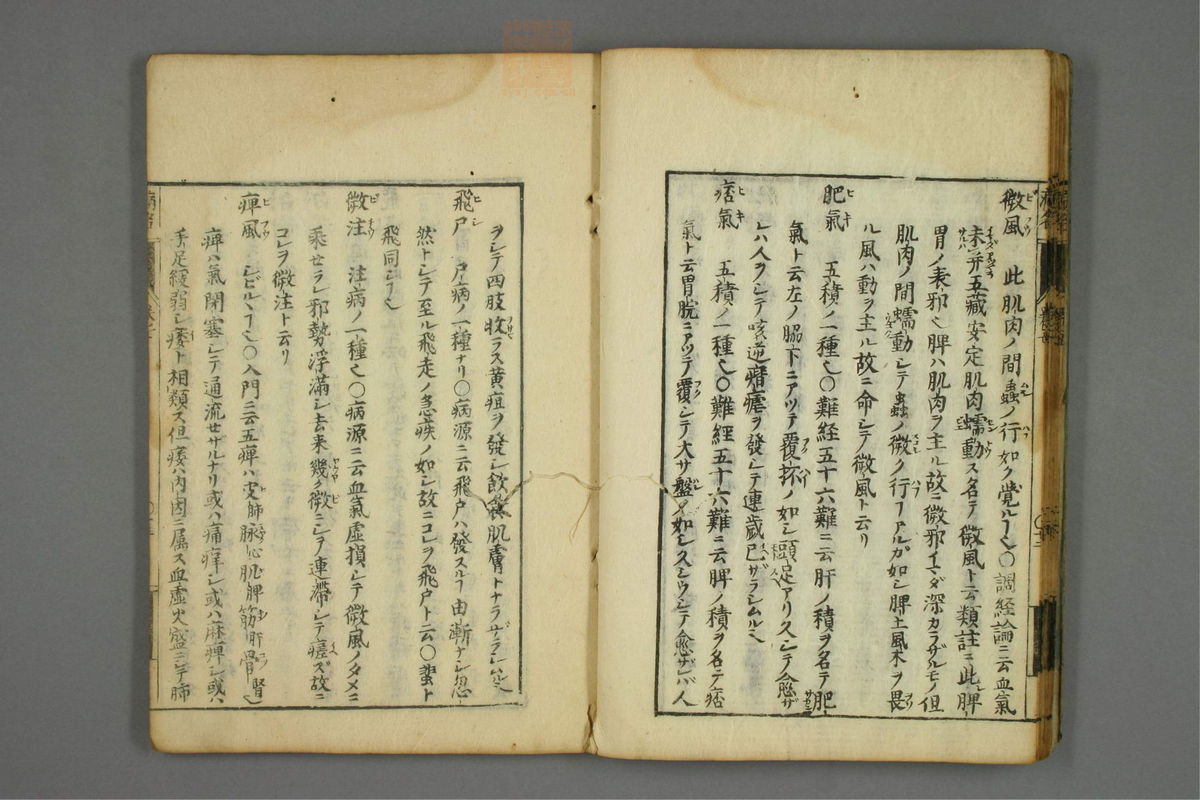 微風 此肌肉ノ間蟲ノ行如ク覚ルヿ也〇調経論ニ云血氣
未并五藏安定肌肉蠕動ス名テ微風ト云類註ニ此脾
胃ノ表邪也脾ハ肌肉ヲ主ル故ニ微邪イマダ深カラザルモノ但
肌肉ノ間蠕動シテ蟲ノ微ク行フアルガ如シ脾土風木ヲ畏
ル風ハ動ヲ主ル故ニ命シテ微風ト云リ
肥氣 五積ノ一種也〇難経五十六難ニ云肝ノ積ヲ名テ肥
氣ト云左ノ脇下ニアツテ覆杯ノ如シ頭足アリ久シテ愈ザ
レハ人ヲシテ咳逆瘧ヲ發シテ連歳已ザラシムル也
痞氣 五積ノ一種也〇難經五十六難ニ云脾ノ積ヲ名テ痞
氣ト云胃脘ニアツテ覆シテ大サ盤ノ如シ久シウシテ愈ザレバ人
ヲシテ四肢收ラス黄疸ヲ發シ飲食肌膚トナラザラシムル也
飛尸 尸病ノ一種ナリ〇病源ニ云飛尸ハ發スルヿ由漸ナシ忽
然トシテ至ル飛走ノ急疾ノ如シ故ニコレヲ飛尸ト云〇蜚ト
飛同シヿ也
微注 注病ノ一種也〇病源ニ云血氣虚損シテ微風ノタメニ
乘セラレ邪勢浮滿シ去来幾ク微ニシテ連滯シテ瘥ズ故ニ
コレヲ微注ト云リ
痺風 シビルヽヿ也〇入門ニ云五痺ハ皮肺脉心肌脾筋肝骨腎也
痺ハ氣閉塞シテ通流セサルナリ或ハ痛痒シ或ハ麻痺シ或ハ
手足緩弱シ痿ト相類ス但痿ハ内因ニ屬ス血虚火盛ニシテ肺